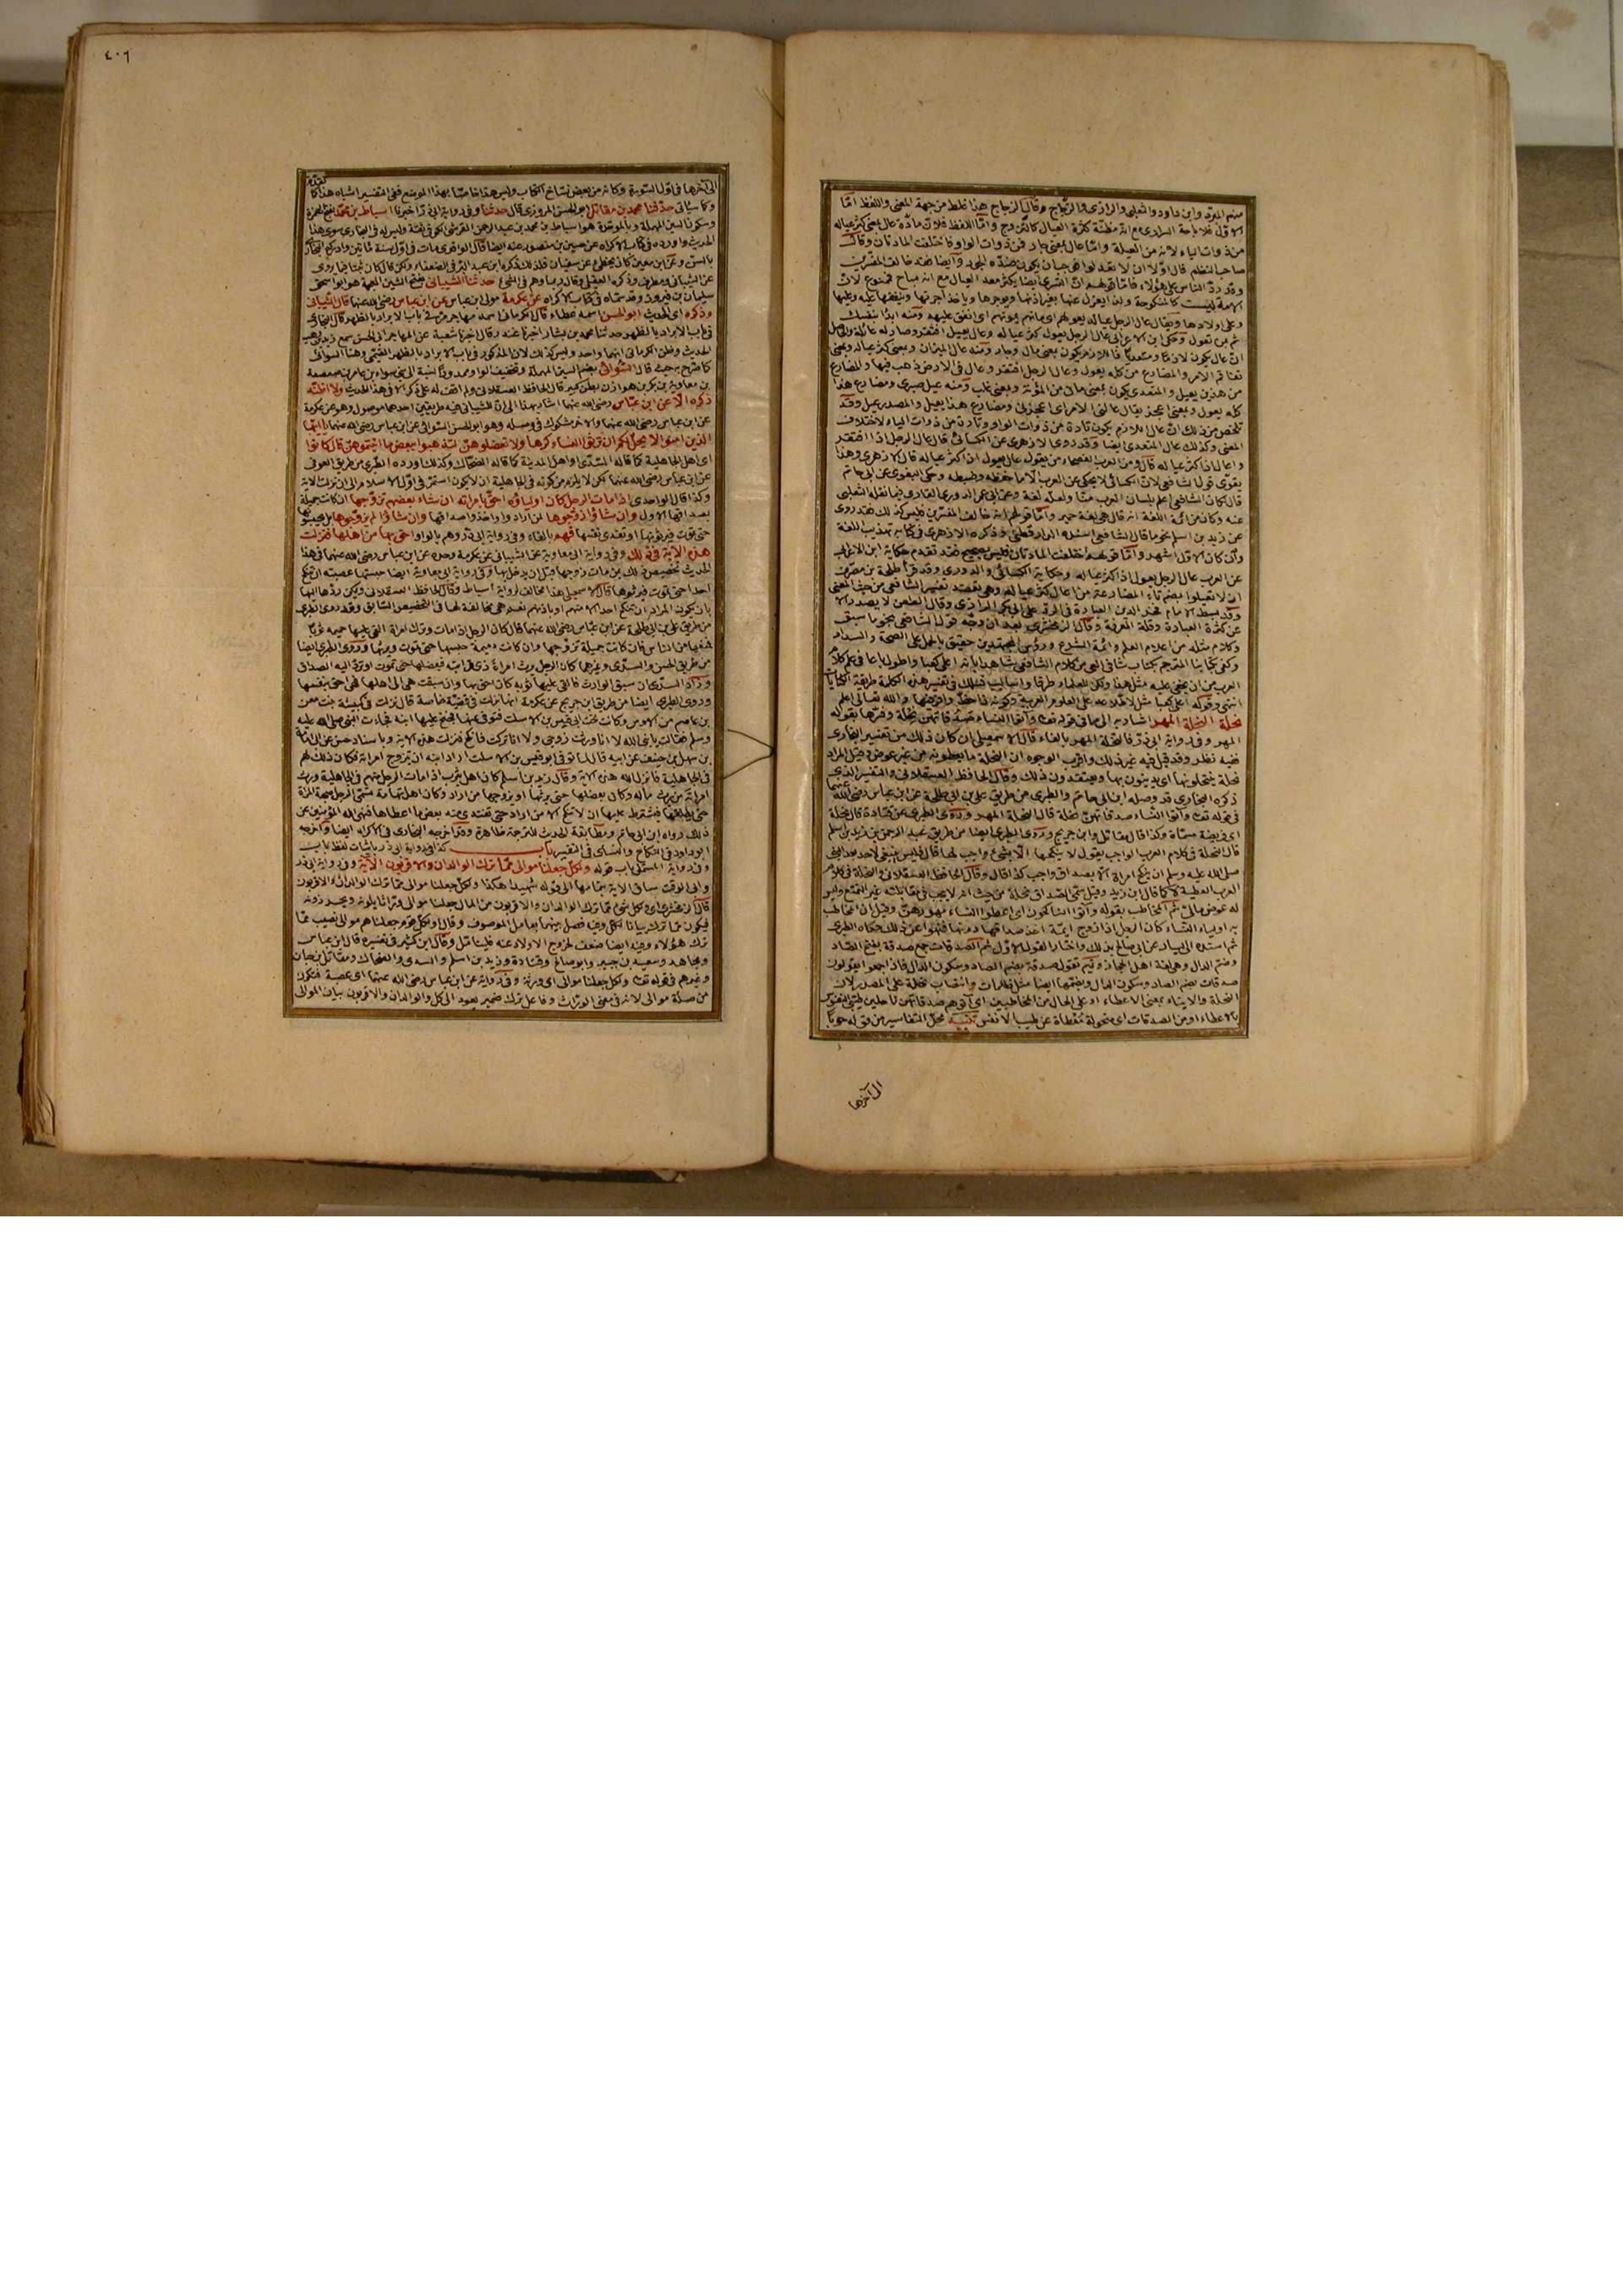 منهم المبرّد وابن داود والثعلبي والرازي والزجاج وقال الزجاج هذا غلط من جهة المعنى واللفظ امّا
الاوّل فلاباحة السراري مع انه مظنّة كثرة العيال كالتزوج وامّا اللفظ فلانّ مادّة عال بمعنى كثر عياله
من ذوات الياء لانه من العيلة وامّا عال بمعنى جار فمن ذوات الواو فاختلفت المادتان وقال
صاحب النظم قال اوّلا ان لا تعدلوا فوجب ان يكون ضدّه الجور وايضا فقد خالف المفسّرين
وقد ردّ الناس على هؤلاء فامّا قولهم انّ التسري ايضا يكثر معه العيال مع انه مباح فممنوع لانّ
الامة ليست كالمنكوحة ولذا يعزل عنها بغير اذنها ويوجرها وياخذ اجرتها وينفقها عليه وعليها
وعلى اولادها ويقال عال الرجل عياله يعولهم اي مانهم يمونهم اي انفق عليهم ومنه ابدأ بنفسك
ثم بمن تعول وحكى ابن الاعرابي عال الرجل يعول كثر عياله وعال يعيل افتقر وصار له عائلة والحاصل
انّ عال يكون لازما ومتعديا فاللازم يكون بمعنى مال وجار ومنه عال الميزان وبمعنى كثر عياله وبمعنى
تفاقم الامر والمضارع من كله يعول وعال الرجل افتقر وعال في الارض ذهب فيها والمضارع
من هذين يعيل والمتعدي يكون بمعنى مان من المؤنة وبمعنى غلب ومنه عيل صبري ومضارع هذا
كله يعول وبمعنى اعجز يقال عالني الامر اي اعجزني ومضارع هذا يعيل والمصدر عيل وقد
تلخص من ذلك انّ عال اللازم يكون تارة من ذوات الواو وتارة من ذوات الياء لاختلاف
المعنى وكذلك عال المتعدي ايضا وقد روى الازهري عن الكسائي قال عال الرجل اذا افتقر
واعال اذا كثر عياله قال ومن العرب الفصحاء من يقول عال يعول اذا كثر عياله قال الازهري وهذا
يقوي قول الشافعي لانّ الكسائي لا يحكي عن العرب الا ما حفظه وضبطه وحكى البغوي عن ابي حاتم
قال كان الشافعي اعلم بلسان العرب منّا ولعلّه لغة وعن ابي عمر الدوري القاري فيما نقله الثعلبي
عنه وكان من ائمة اللغة انه قال هي لغة حمير وامّا قولهم انه خالف المفسّرين فليس كذلك فقد روى
عن زيد بن اسلم نحو ما قال الشافعي اسنده الدارقطني وذكره الازهري في كتابه تهذيب اللغة
وان كان الاوّل اشهر وامّا قولهم اختلفت المادتان فليس بصحيح فقد تقدم حكاية ابن الاعرابي
عن العرب عال الرجل يعول اذا كثر عياله وحكاية الكسائي والدوري وقد قرأ طلحة بن مصرّف
ان لا تعيلوا بضم تاء المضارعة من اعال كثر عياله وهي تعضد تفسير الشافعي من حيث المعنى
وقد بسط الامام فخر الدين العبارة في الردّ على ابي بكر الرازي وقال الطعن لا يصدر الا
عن كثرة الغباوة وقلة المعرفة وقال الزمخشري بعد ان وجّه قول الشافعي بنحو ما سبق
وكلام مثله من اعلام العلم وائمة الشرع ورؤس المجتهدين حقيق بالحمل على الصحة والسداد
وكفى بكتابنا المترجم بكتاب شافي العي من كلام الشافعي شاهدا بانه اعلى كعبا واطول باعا في علم كلام
العرب من ان يخفى عليه مثل هذا ولكن للعلماء طرقا واساليب فسلك في تفسير هذه الكلمة طريقة الكنايات
انتهى وقوله اعلى كعبا مثل لاطلاعه على العلوم العربية وكونه ذا حظّ وافر فيها والله تعالى اعلم
نحلة النحلة المهر اشار به الى ما في قوله تعالى وآتوا النساء صدقاتهنّ نحلة وفسّرها بقوله
المهر وفي رواية ابي ذرّ فالنحلة المهر بالفاء قال الاسمعيلي ان كان ذلك من تفسير البخاري
ففيه نظر وقد قيل فيه غير ذلك واقرب الوجوه ان النحلة ما يعطونه من غير عوض وقيل المراد
نحلة ينتحلونها اي يدينون بها ويعتقدون ذلك وقال الحافظ العسقلاني والتفسير الذي
ذكره البخاري قد وصله ابن ابي حاتم والطبري من طريق علي بن ابي طلحة عن ابن عباس رضي الله عنهما
في قوله تعالى وآتوا النساء صدقاتهنّ نحلة قال النحلة المهر وروى الطبري عن قتادة قال نحلة
اي فريضة مسمّاة وكذا قال مقاتل وابن جريج وروى الطبري ايضا من طريق عبد الرحمن بن زيد بن اسلم
قال النحلة في كلام العرب الواجب يقول لا ينكحها الّا بشيء واجب لها قال فليس ينبغي لاحد بعد النبي
صلى الله عليه وسلم ان ينكح امراة الا بصداق واجب كذا قال وقال الحافظ العسقلاني والنحلة في كلام
العرب العطية لا كما قال ابن زيد وقيل سمّي الصداق نحلة من حيث انه لا يجب في مقابلته غير التمتع وليس
له عوض مالي ثم المخاطب بقوله وآتوا الناكحون اي اعطوا النساء مهورهنّ وقيل ان المخاطب
به اولياء النساء كان الرجل اذا زوج ايمّة اخذ صداقها دونها فنهوا عن ذلك حكاه الطبري
ثم اسنده الى سيار عن ابي صالح بذلك واختار القول الاوّل ثم الصدقات جمع صدقة بفتح الصاد
وضم الدال وهي لغة اهل الحجاز وتميم تقول صدقة بضم الصاد وسكون الدال فاذا جمعوا يقولون
صدقات بضم الصاد وسكون الدال وبضمّها ايضا مثل ظلمات وانتصاب نحلة على المصدر لانّ
النحلة والايتاء بمعنى الاعطاء او على الحال من المخاطبين اي آتوهم صدقاتهن ناحلين طيّبي النفوس
بالاعطاء او من الصدقات اي منحولة معطاة عن طيب الانفس تنبيه محلّ التفاسير من قوله حوبا
الى آخرها
٤٠٦
الى آخرها في اوّل السورة وكانه من بعض نسّاخ الكتاب وليس هذا خاصّا بهذا الموضع ففي التفسير اشباه هذا كما تقدّم
وكما سياتي حدّثنا محمد بن مقاتل ابو الحسن المروزي قال حدثنا وفي رواية ابي ذرّ اخبرنا اسباط بن محمد بفتح الهمزة
وسكون السين المهملة وبالموحّدة هو اسباط بن محمد بن عبد الرحمن القرشي الكوفي ثقة وليس له في البخاري سوى هذا
الحديث واورده في كتاب الاكراه عن حسين بن منصور عنه ايضا قال الواقدي مات في اوّل سنة مائتين وادركه البخاري
بالسنّ وعن ابن معين كان يخطئ عن سفيان فلذلك ذكره ابن عبد البرّ في الضعفاء ولكن قال كان ثبتا فيما يروي
عن الشيباني ومطرف وذكره العقيلي وقال ربما وهم في الشيء حدثنا الشيباني بفتح الشين المعجمة هو ابو اسحق
سليمان بن فيروز وقد سمّاه في كتاب الاكراه عن عكرمة مولى ابن عباس عن ابن عباس رضي الله عنهما قال الشيباني
وذكره اي الحديث ابو الحسن اسمه عطاء قال الكرماني اسمه مهاجر مرّ في باب الابراد بالظهر قال البخاري
في باب الابراد بالظهر حدثنا محمد بن بشار اخبرنا غندر قال اخبرنا شعبة عن المهاجر ابي الحسن سمع زيد بن وهب
الحديث وظن الكرماني انهما واحد وليس كذلك لان المذكور في باب الابراد بالظهر التيمي وهنا السوائي
كما صرّح به حيث قال السُّوائي بضم السين المهملة وتخفيف الواو ممدودا نسبة الى بني سواء بن عامر بن صعصعة
بن معاوية بن بكر بن هوازن بطن كبير قال الحافظ العسقلاني ولم اقف له على ذكر الا في هذا الحديث ولا اظنّه
ذكره الّا عن ابن عبّاس رضي الله عنهما اشار بهذا الى انّ للشيباني فيه طريقين احدهما موصول وهو عن عكرمة
عن ابن عباس رضي الله عنهما والآخر مشكوك في وصله وهو ابو الحسن السوائي عن ابن عباس رضي الله عنهما يا ايّها
الذين امنوا لا يحلّ لكم ان ترثوا النساء كرها ولا تعضلوهنّ لتذهبوا ببعض ما آتيتموهنّ قال كانوا
اي اهل الجاهلية كما قاله السّدّي او اهل المدينة كما قاله الضحّاك وكذلك اورده الطبري من طريق العوفي
عن ابن عباس رضي الله عنهما لكن لا يلزم من كونه في الجاهلية ان لا يكون استمر في اوّل الاسلام الى ان نزلت الآية
وكذا قال الواحدي اذا مات الرجل كان اولياؤه احقّ بامراته ان شاء بعضهم تزوّجها ان كانت جميلة
بصداقها الاول وان شاؤا زوّجوها لمن ارادوا واخذوا صداقها وان شاؤا لم يزوّجوها بل يحبسونها
حتى تموت فيرثونها او تفتدي نفسها فهم بالفاء وفي رواية ابي ذرّ وهم بالواو احقّ بها من اهلها فنزلت
هذه الآية في ذلك وفي رواية ابي معاوية عن الشيباني عن عكرمة وحده عن ابن عباس رضي الله عنهما في هذا
الحديث تخصيص ذلك بمن مات زوجها قبل ان يدخل بها وفي رواية ابي معاوية ايضا حبستها عصبته ان تنكح
احدا حتى تموت فيرثوها قال الاسمعيلي هذا مخالف لرواية اسباط وقال الحافظ العسقلاني ويمكن ردّها اليها
بان يكون المراد ان تنكح احدا الا منهم او باذنهم نعم هي مخالفة لها في التخصيص السابق وقد روى الطبري
من طريق علي بن ابي طلحة عن ابن عبّاس رضي الله عنهما قال كان الرجل اذا مات وترك امراة القى عليها حميمه ثوبا
فمنعها من الناس فان كانت جميلة تزوّجها وان كانت دميمة حبسها حتى تموت ويرثها وروى الطبري ايضا
من طريق الحسن والسدّي وغيرهما كان الرجل يرث امراة ذي قرابته فيعضلها حتى تموت او تردّ اليه الصداق
وزاد السدّي ان سبق الوارث فالقى عليها ثوبه كان احق بها وان سبقت هي الى اهلها فهي احق بنفسها
وروى الطبري ايضا من طريق ابن جريج عن عكرمة انها نزلت في قضيّة خاصة قال نزلت في كبيشة بنت معن
بن عاصم من الاوس وكانت تحت ابي قيس بن الاسلت فتوفي عنها فجنح عليها ابنه فجاءت النبي صلى الله عليه
وسلم فقالت يا نبيّ الله لا انا ورثت زوجي ولا انا تركت فانكح فنزلت هذه الآية وباسناد حسن عن ابي امامة
بن سهل بن حنيف عن ابيه قال لما توفي ابو قيس بن الاسلت اراد ابنه ان يتزوج امراته فكان ذلك لهم
في الجاهلية فانزل الله هذه الآية وقال زيد بن اسلم كان اهل يثرب اذا مات الرجل منهم في الجاهلية ورث
امراته من يرث ماله وكان يعضلها حتى يرثها او يزوجها من اراد وكان اهل تهامة يسيء الرجل صحبة المراة
حتى يطلّقها ويشترط عليها ان لا تنكح الا من اراد حتى تفتدي منه ببعض ما اعطاها فنهى الله المؤمنين عن
ذلك رواه ابن ابي حاتم ومطابقة الحديث للترجمة ظاهرة وقد اخرجه البخاري في الاكراه ايضا واخرجه
ابو داود في النكاح والنسائي في التفسير باب كذا في رواية ابي ذرّ باثبات لفظ باب
وفي رواية المستملي باب قوله ولكلّ جعلنا موالي ممّا ترك الوالدان والاقربون الآية وفي رواية ابي ذر
وابي الوقت ساق الآية بتمامها الى قوله شهيدا هكذا ولكل جعلنا موالي مما ترك الوالدان والاقربون
قال الزمخشري اي ولكل شيء ممّا ترك الوالدان والاقربون من المال جعلنا موالي ورّاثا يلونه ويحرزونه
فيكون مما ترك بيانا لكل وفيه فصل بينهما بعامل الموصوف وقال او لكل قوم جعلناهم موالي نصيب ممّا
ترك هؤلاء وفيه ايضا ضعف لخروج الاولاد عنه فليتامّل وقال ابن كثير في تفسيره قال ابن عباس
ومجاهد وسعيد بن جبير وابو صالح وقتادة وزيد بن اسلم والسدي والضحاك ومقاتل بن حيان
وغيرهم في قوله تعالى ولكل جعلنا موالي اي ورثة وفي رواية عن ابن عباس رضي الله عنهما اي عصبة فتكون
من صلة موالي لانه في معنى الورّاث وفاعل ترك ضمير يعود الى كل والوالدان والاقربون بيان الموالي